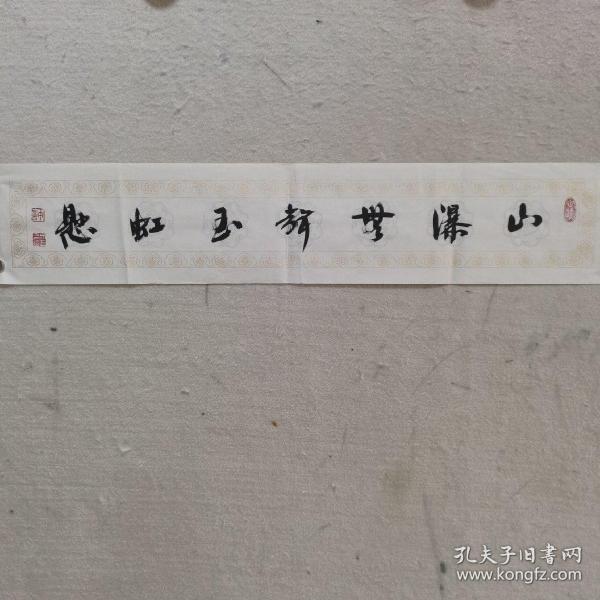 山瀑無聲玉虹懸
孔夫子旧書网
www.kongfz.com